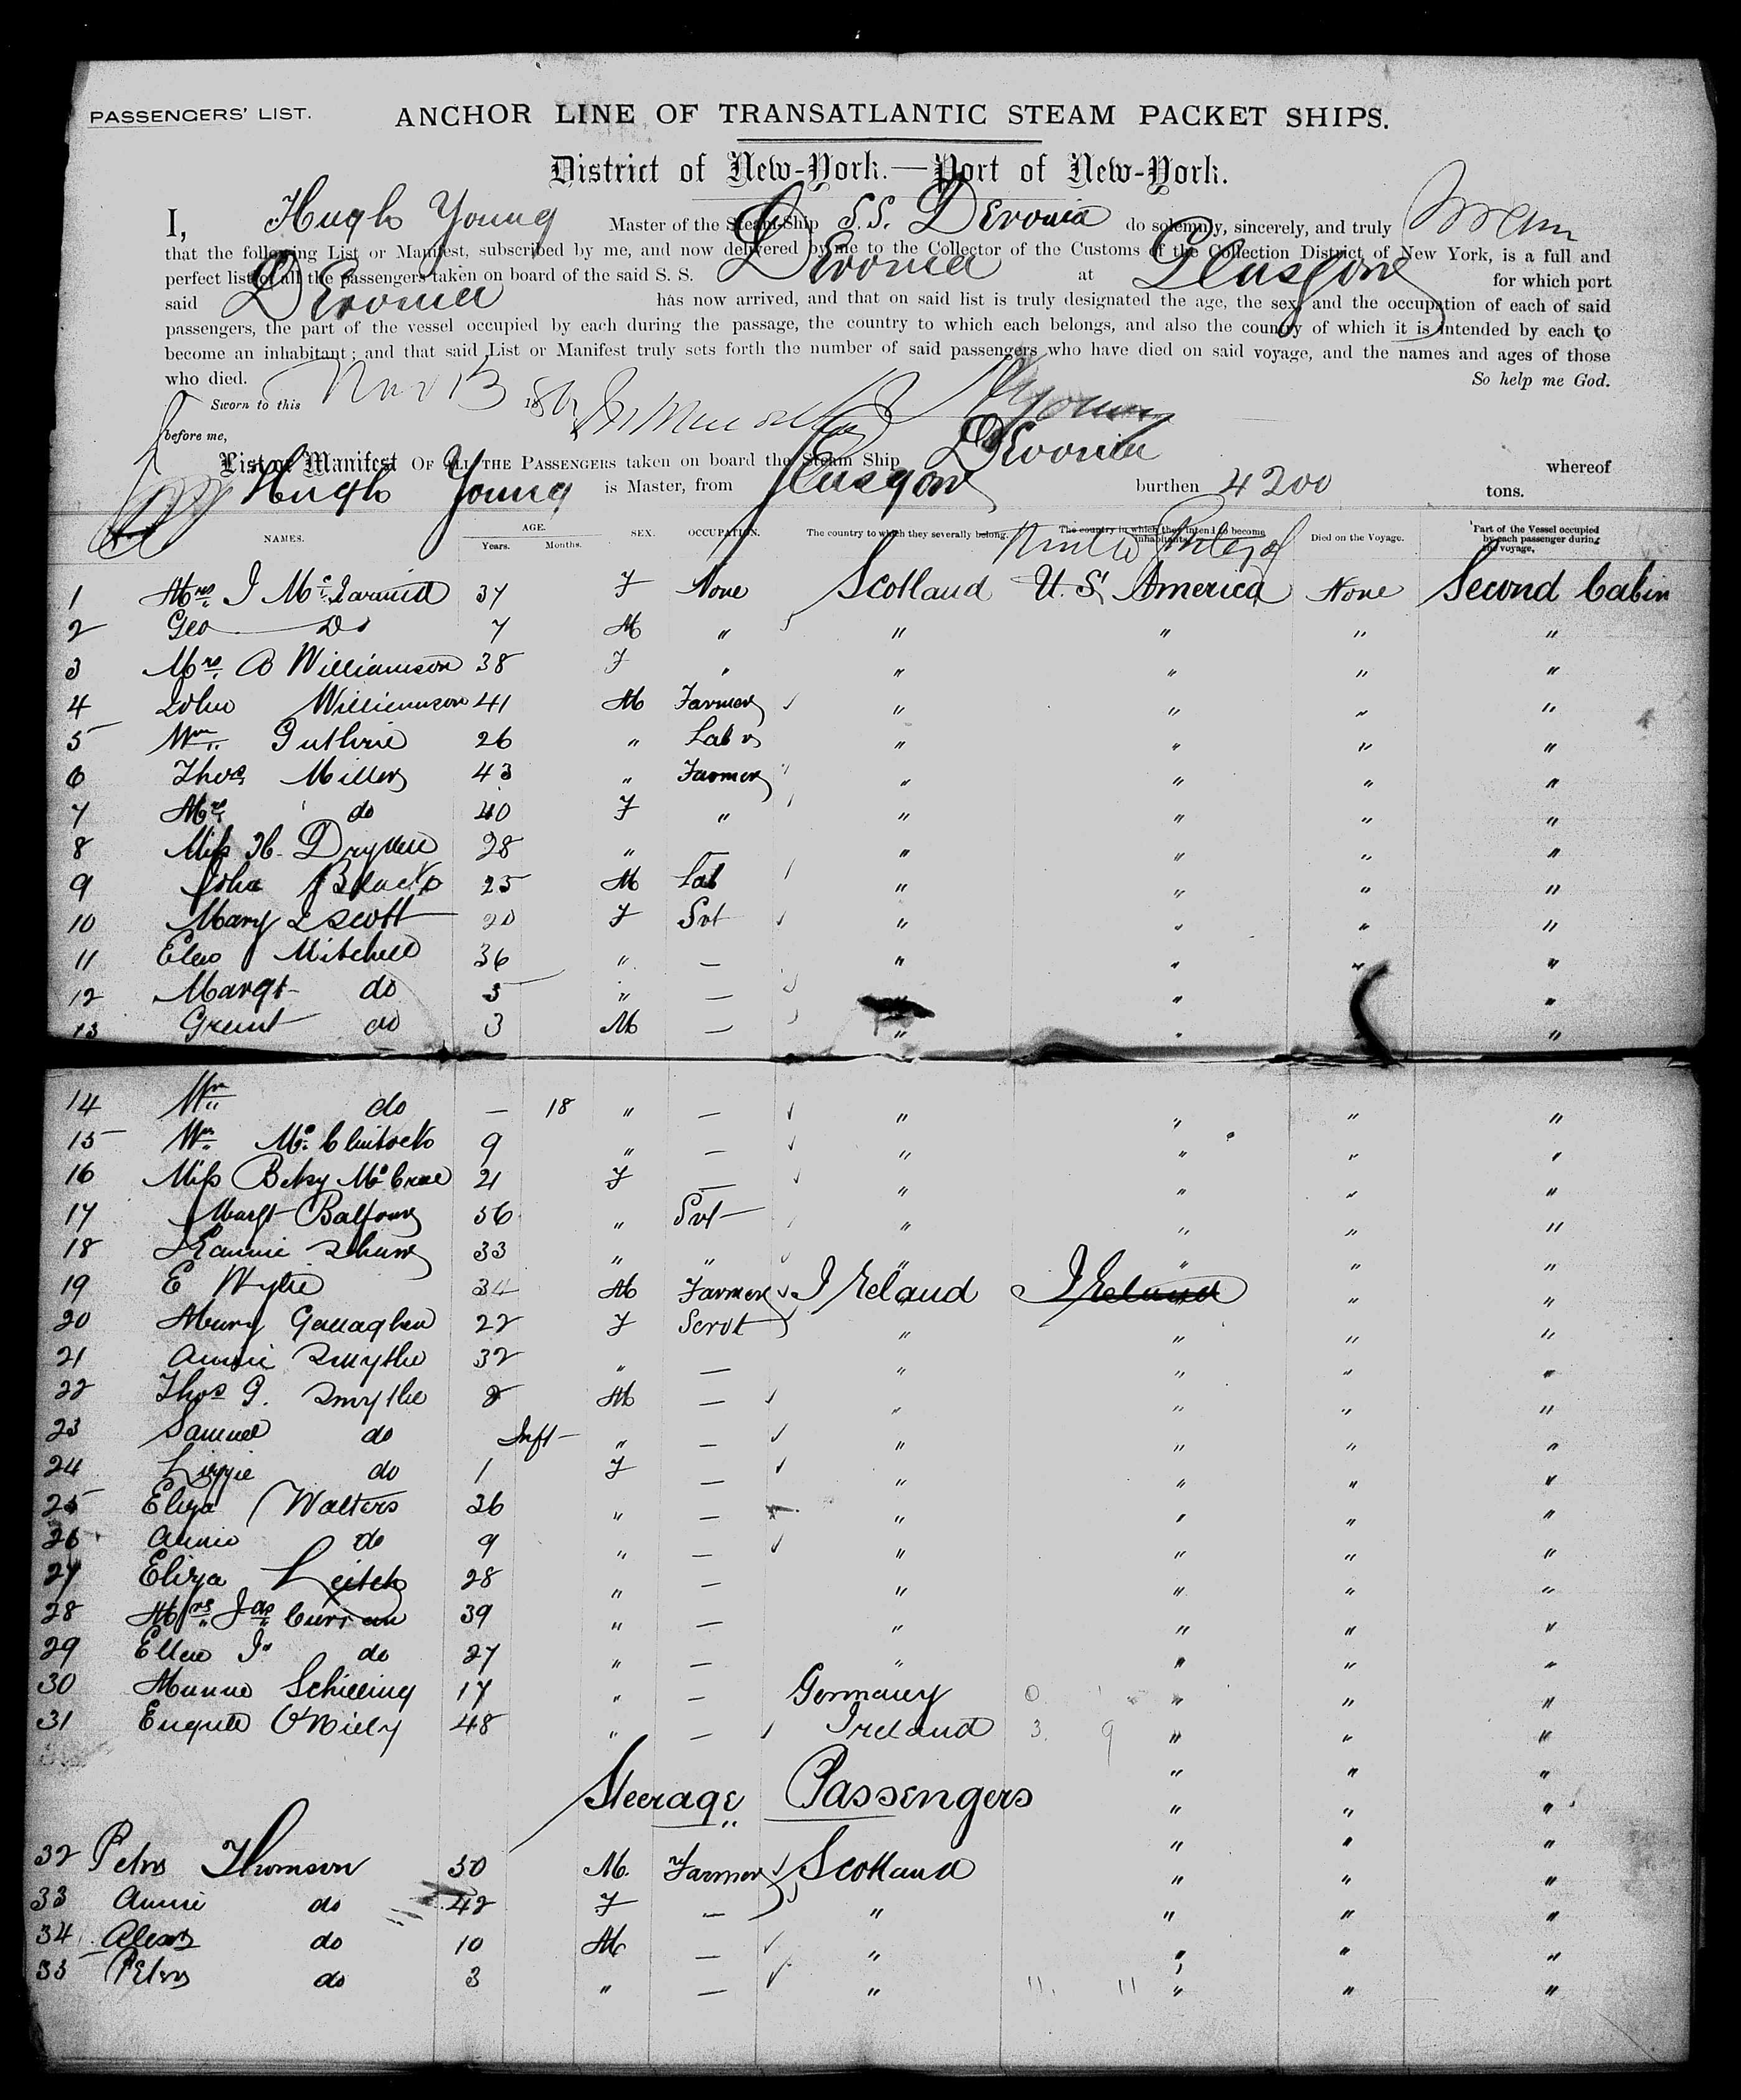 PASSENGERS' LIST.
ANCHOR LINE OF TRANSATLANTIC STEAM PACKET SHIPS.
District of New-York.—Port of New-York.
I, Hugh Young Master of the Steam-Ship S.S. Devonia do solemnly, sincerely, and truly swear
that the following List or Manifest, subscribed by me, and now delivered by me to the Collector of the Customs of the Collection District of New York, is a full and
perfect list of all the passengers taken on board of the said S. S. Devonia at Glasgow for which port
said Devonia has now arrived, and that on said list is truly designated the age, the sex, and the occupation of each of said
passengers, the part of the vessel occupied by each during the passage, the country to which each belongs, and also the country of which it is intended by each to
become an inhabitant; and that said List or Manifest truly sets forth the number of said passengers who have died on said voyage, and the names and ages of those
who died. So help me God.
Sworn to this Nov 13 18 Young
before me,
List or Manifest OF ALL THE PASSENGERS taken on board the Steam Ship Devonia whereof
Hugh Young is Master, from Glasgow burthen 4200 tons.
NAMES. AGE. Years. Months. SEX. OCCUPATION. The country to which they severally belong. The country in which they intend to become inhabitants. Died on the Voyage. Part of the Vessel occupied by each passenger during the voyage.
1 Mrs J 37 F None Scotland U.S. America None Second Cabin
2 Geo Do 7 M " " " " "
3 Mrs B Williamson 38 F " " " " "
4 John Williamson 41 M Farmer " " " "
5 Wm Guthrie 26 " Labr " " " "
6 Thos Miller 43 " Farmer " " " "
7 Mrs do 40 F " " " " "
8 Miss H. Dryden 28 " — " " " "
9 John Black 25 M Lab " " " "
10 Mary Scott 20 F Svt " " " "
11 Mitchell 36 " — " " " "
12 Margt do 5 " — " " " "
13 Grant do 3 M — " " " "
14 Wm do — 18 " — " " " "
15 Wm McClintock 9 " — " " " "
16 Miss Betsy McCrae 21 F — " " " "
17 Margt Balfour 56 " Svt " " " "
18 Jeannie Shaw 33 " " " " " "
19 E Wylie 34 M Farmer Ireland Ireland " "
20 Mary Gallagher 22 F Servt " " " "
21 Annie Smythe 32 " — " " " "
22 Thos G. Smythe 2 M — " " " "
23 Samuel do Inft " — " " " "
24 Lizzie do 1 F — " " " "
25 Eliza Walters 36 " — " " " "
26 Annie do 9 " — " " " "
27 Eliza Leitch 28 " — " " " "
28 Mrs Jas Curran 39 " — " " " "
29 Ellen J do 27 " — " " " "
30 Schilling 17 " — Germany " " "
31 48 " — Ireland " " "
" " "
Steerage Passengers " " "
" " "
32 Peter Thomson 50 M. Farmer Scotland " " "
33 Annie do 42 F — " " " "
34 Alexr do 10 M — " " " "
35 Peter do 3 " — " " " "